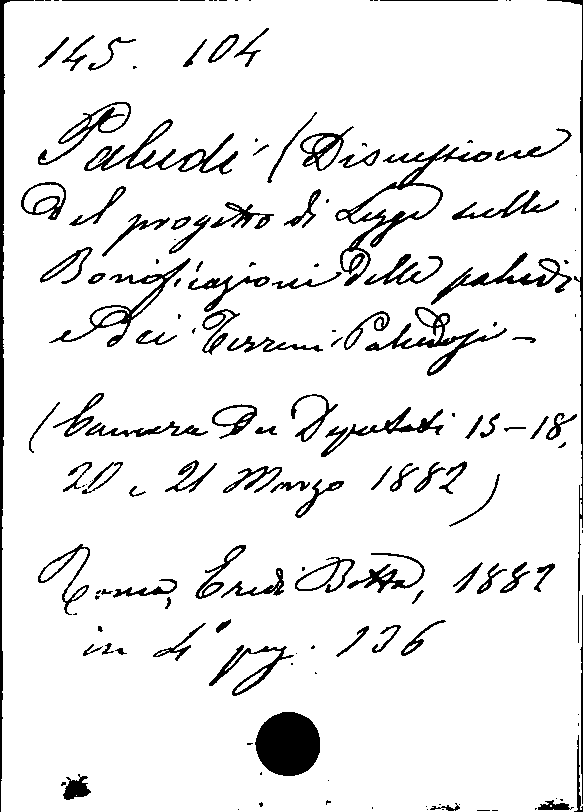 145. 104
Paludi (Discussione
del progetto di Legge sulle
Bonificazioni delle paludi
e dei Terreni Paludosi –
(Camera dei Deputati 15–18,
20 e 21 Marzo 1882)
Roma, Eredi Botta, 1882
in 4° pag. 136